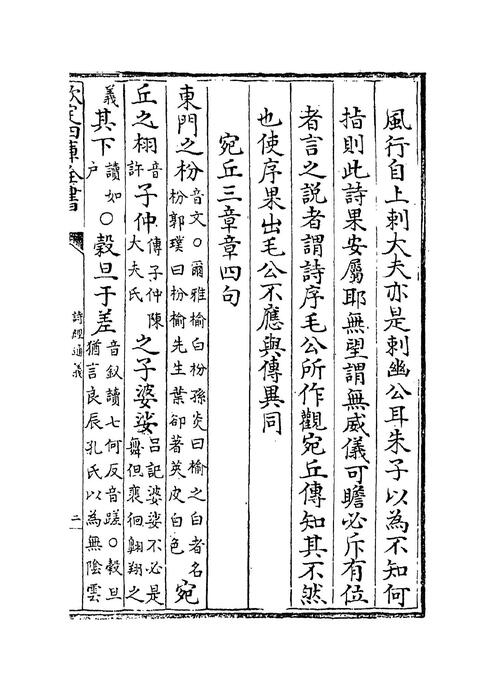 風行自上刺大夫亦是刺幽公耳朱子以為不知何
指則此詩果安屬耶無望謂無威儀可瞻必斥有位
者言之説者謂詩序毛公所作觀宛丘傳知其不然
也使序果出毛公不應與傳異同
宛丘三章章四句
東門之枌音文○爾雅榆白枌孫炎曰榆之白者名枌郭璞曰枌榆先生葉卻著英皮白色宛
丘之栩音許子仲傳子仲陳大夫氏之子婆娑吕記婆娑不必是舞但裵徊翺翔之
義其下讀如戶○穀旦于差音釵讀七何反音蹉○穀旦猶言良辰孔氏以為無陰雲
欽定四庫全書
詩經通義
二